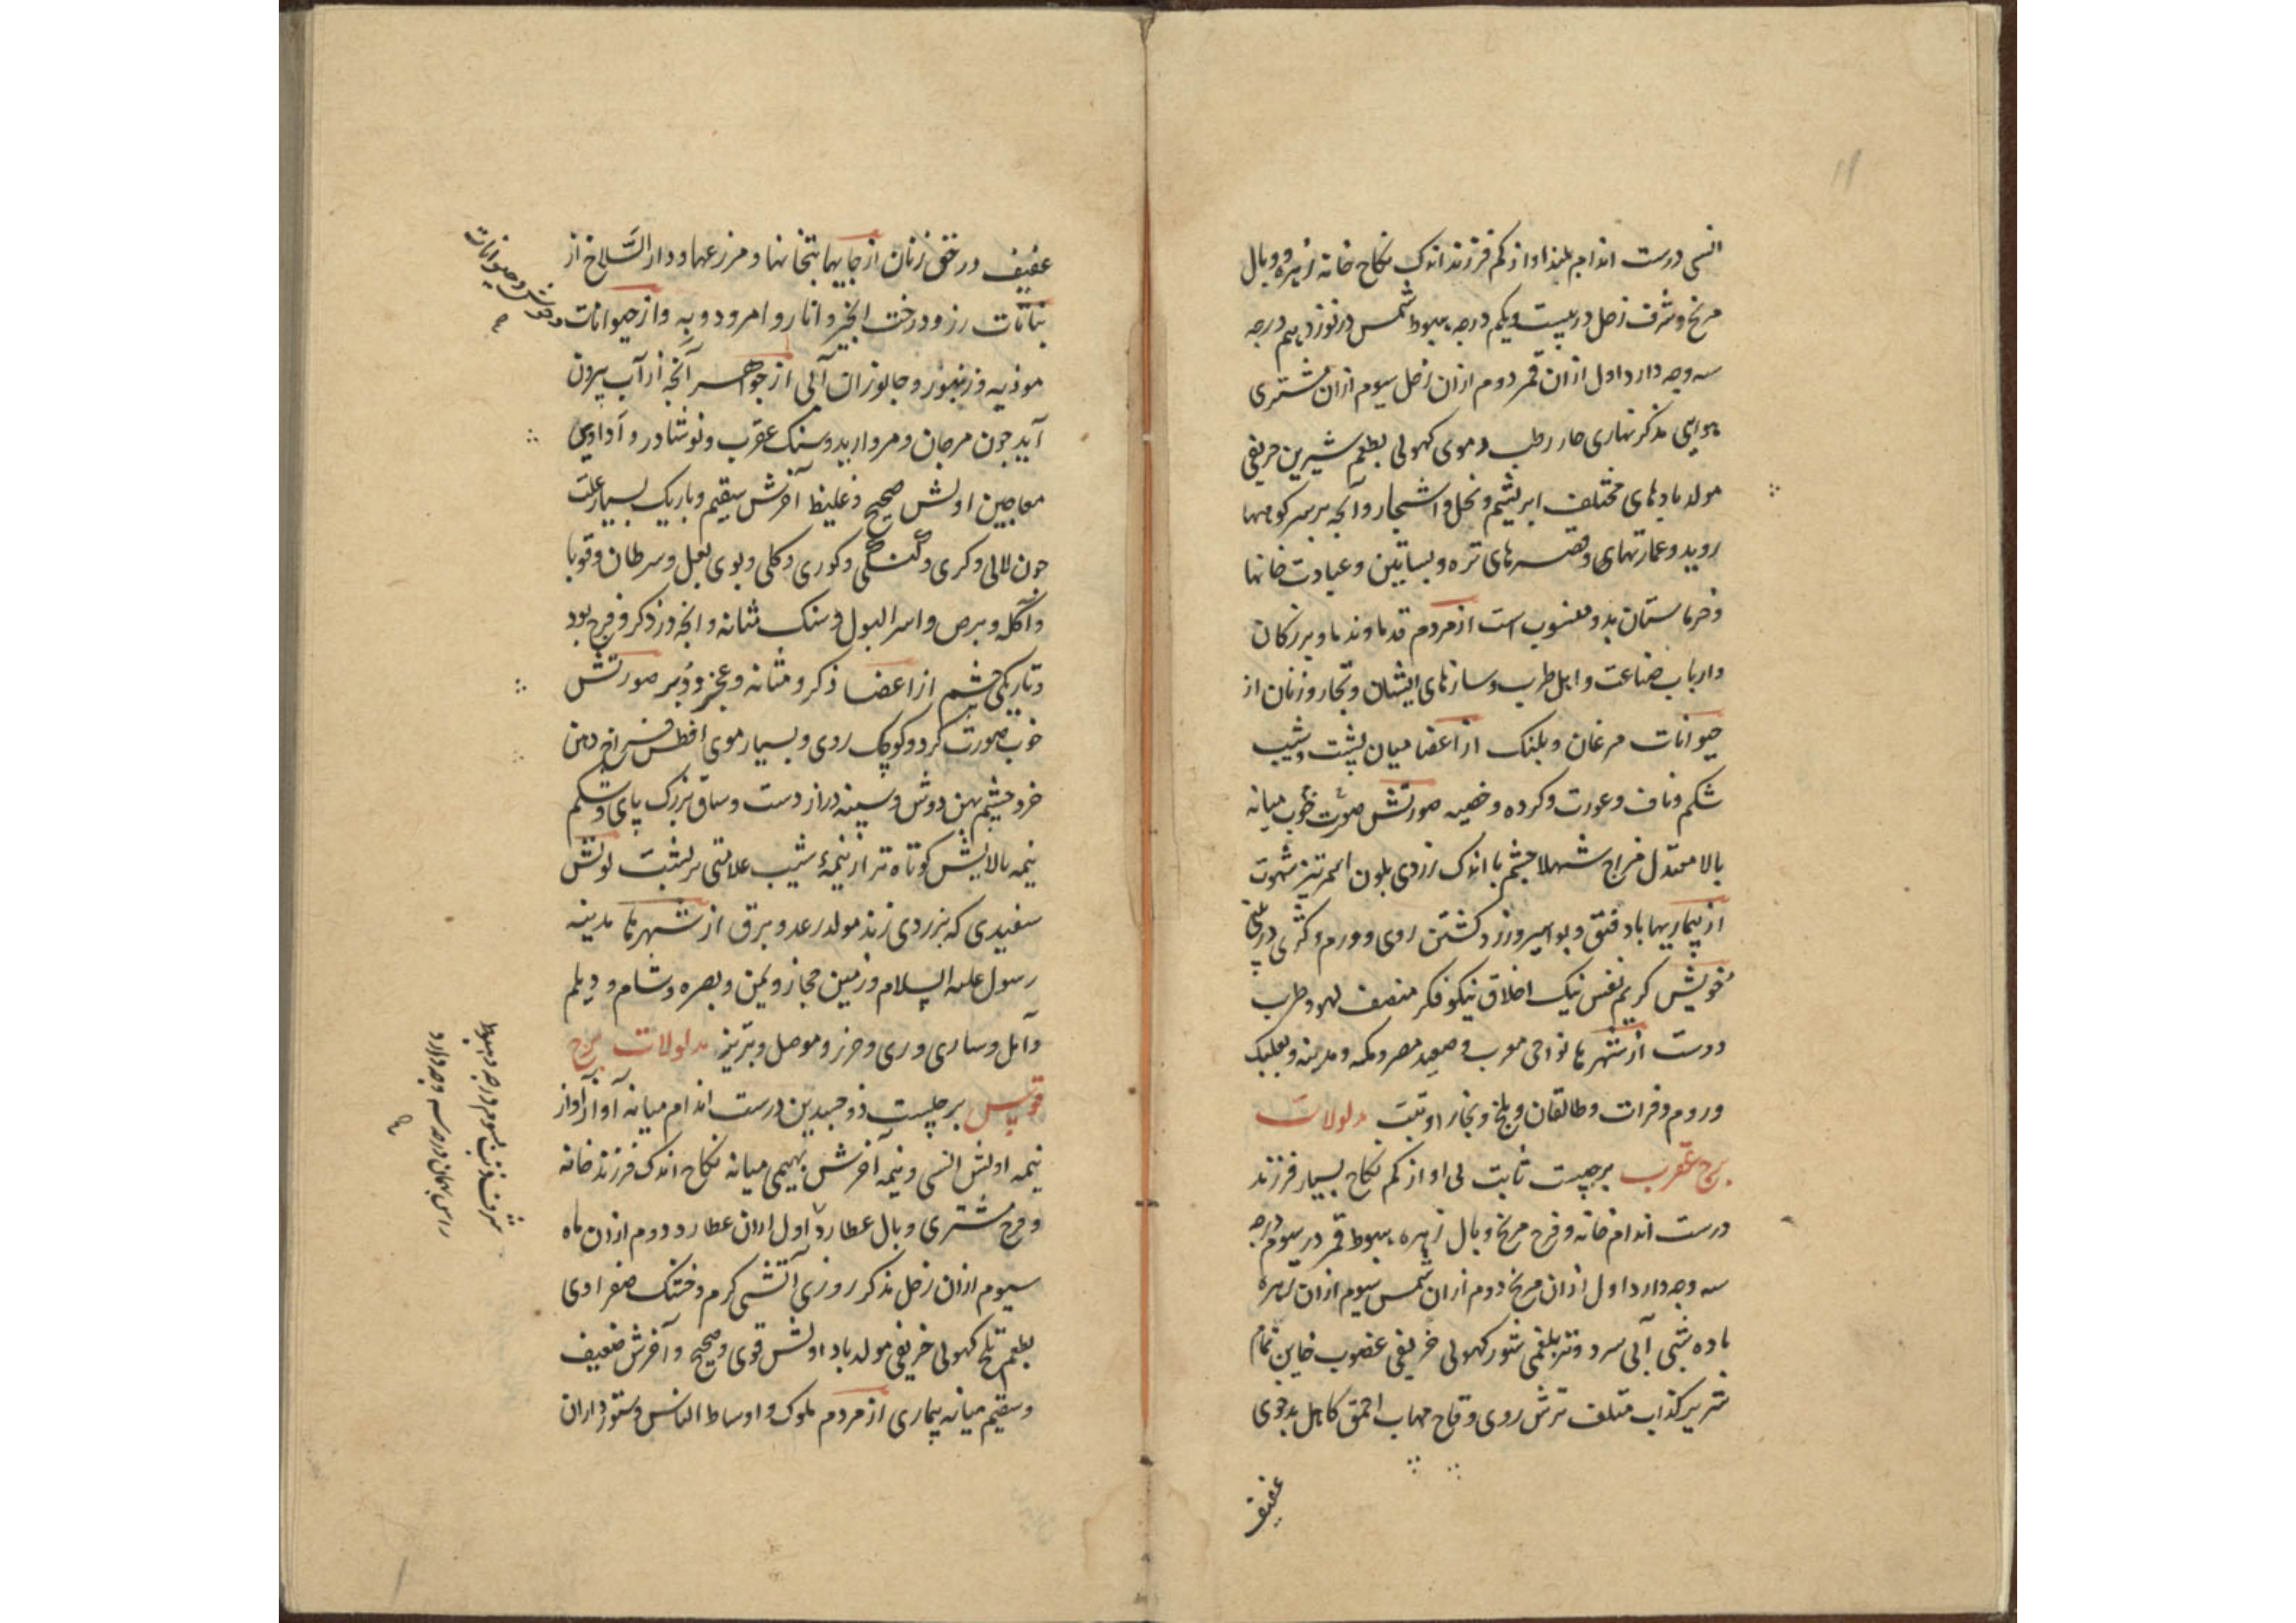 انسی درست اندام بلند اواز کم فرزند اندک نکاح خانه زهره و وبال
مریخ و شرف زحل در بیست و یکم درجه هبوط شمس در نوزدهم درجه
سه وجه دارد اول ازان قمر دوم ازان زحل سیوم ازان مشتری
هوایی مذکر نهاری حار رطب دموی کهولی بطعم شیرین خریفی
مولد بادهای مختلف ابریشم و نخل و اشجار و آنچه بر سر کوهها
روید و عمارتهای و قصرهای تره و بساتین و عبادت خانها
و خرماستان بدو منسوب است از مردم قدما و ندما و بزرکان
و ارباب صناعت و اهل طرب و سازهای ایشان و تجار و زنان از
حیوانات مرغان و پلنک از اعضا میان پشت و شیب
شکم و ناف و عورت و کرده و خصیه صورتش صورت خوب میانه
بالا معتدل مزاج شهلا چشم با اندک زردی بلون اسمر تیز شهوت
از بیماریها باد فتق و بواسیر و زرد کشتن روی و ورم و کژی در بینی
خویش کریم نفس نیک اخلاق نیکو فکر منصف لهو و طرب
دوست از شهرها نواحی مغرب و صعید مصر و مکه و مدینه و بعلبک
و روم و فرات و طالقان و بلخ و بخارا و تبت مدلولات
برج عقرب برجیست ثابت بی اواز کم نکاح بسیار فرزند
درست اندام خانه و فرح مریخ و بال زهره هبوط قمر در سیوم درجه
سه وجه دارد اول ازان مریخ دوم ازان شمس سیوم ازان زهره
ماده شبی آبی سرد و تر بلغمی شور کهولی خریفی غضوب خاین نمام
شریر کذاب متلف ترش روی وقاح مهاب احمق کاهل بدخوی
عفیف
عفیف در حق زنان از جایها بتخانها و مزرعها و دار السلاخ از
نباتات رز و درخت انجیر و انار و امرود و به و از حیوانات
وحوش و حیوانات
موذیه و زنبور و جانوران آبی از جواهر آنچه از آب بیرون
آید چون مرجان و مروارید و سنک عقرب و نوشادر و ادویه
معاجین اولش صحیح و غلیظ آخرش سقیم و باریک بسیار علت
چون لالی و کری و گنگی و کوری و کلی و بوی بغل و سرطان و قوبا
و آکله و برص و اسر البول و سنک مثانه و انچه در ذکر و فرج بود
و تاریکی چشم از اعضا ذکر و مثانه و عجز و دبر صورتش
خوب صورت کرد و کوچک روی و بسیار موی افطس فراخ دهن
خرد چشم پهن دوش و سینه دراز دست و ساق بزرک پای و شکم
نیمه بالایش کوتاه تر از نیمهٔ شیب علامتی بر پشت لونش
سفیدی که بزردی زند مولد رعد و برق از شهرها مدینه
رسول علیه السلام و زمین حجاز و یمن و بصره و شام و دیلم
و آمل و ساری و ری و خزر و موصل و تبریز مدلولات برج
قوس برجیست ذو جسدین درست اندام میانه آواز آواز
نیمه اولش انسی و نیمه آخرش بهیمی میانه نکاح اندک فرزند خانه
و فرح مشتری و بال عطارد اول ازان عطارد دوم ازان ماه
شرف ذنب بسیوم درجه و هبوط
راس سه وجه دارد
سیوم ازان زحل مذکر روزی آتشی کرم و خشک صفراوی
بطعم تلخ کهولی خریفی مولد باد اولش قوی و صحیح و آخرش ضعیف
و سقیم میانه بیماری از مردم ملوک و اوساط الناس و ستورداران